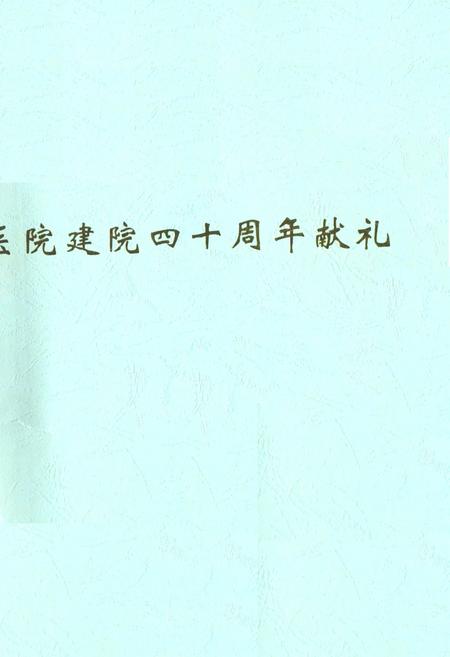 医院建院四十周年献礼